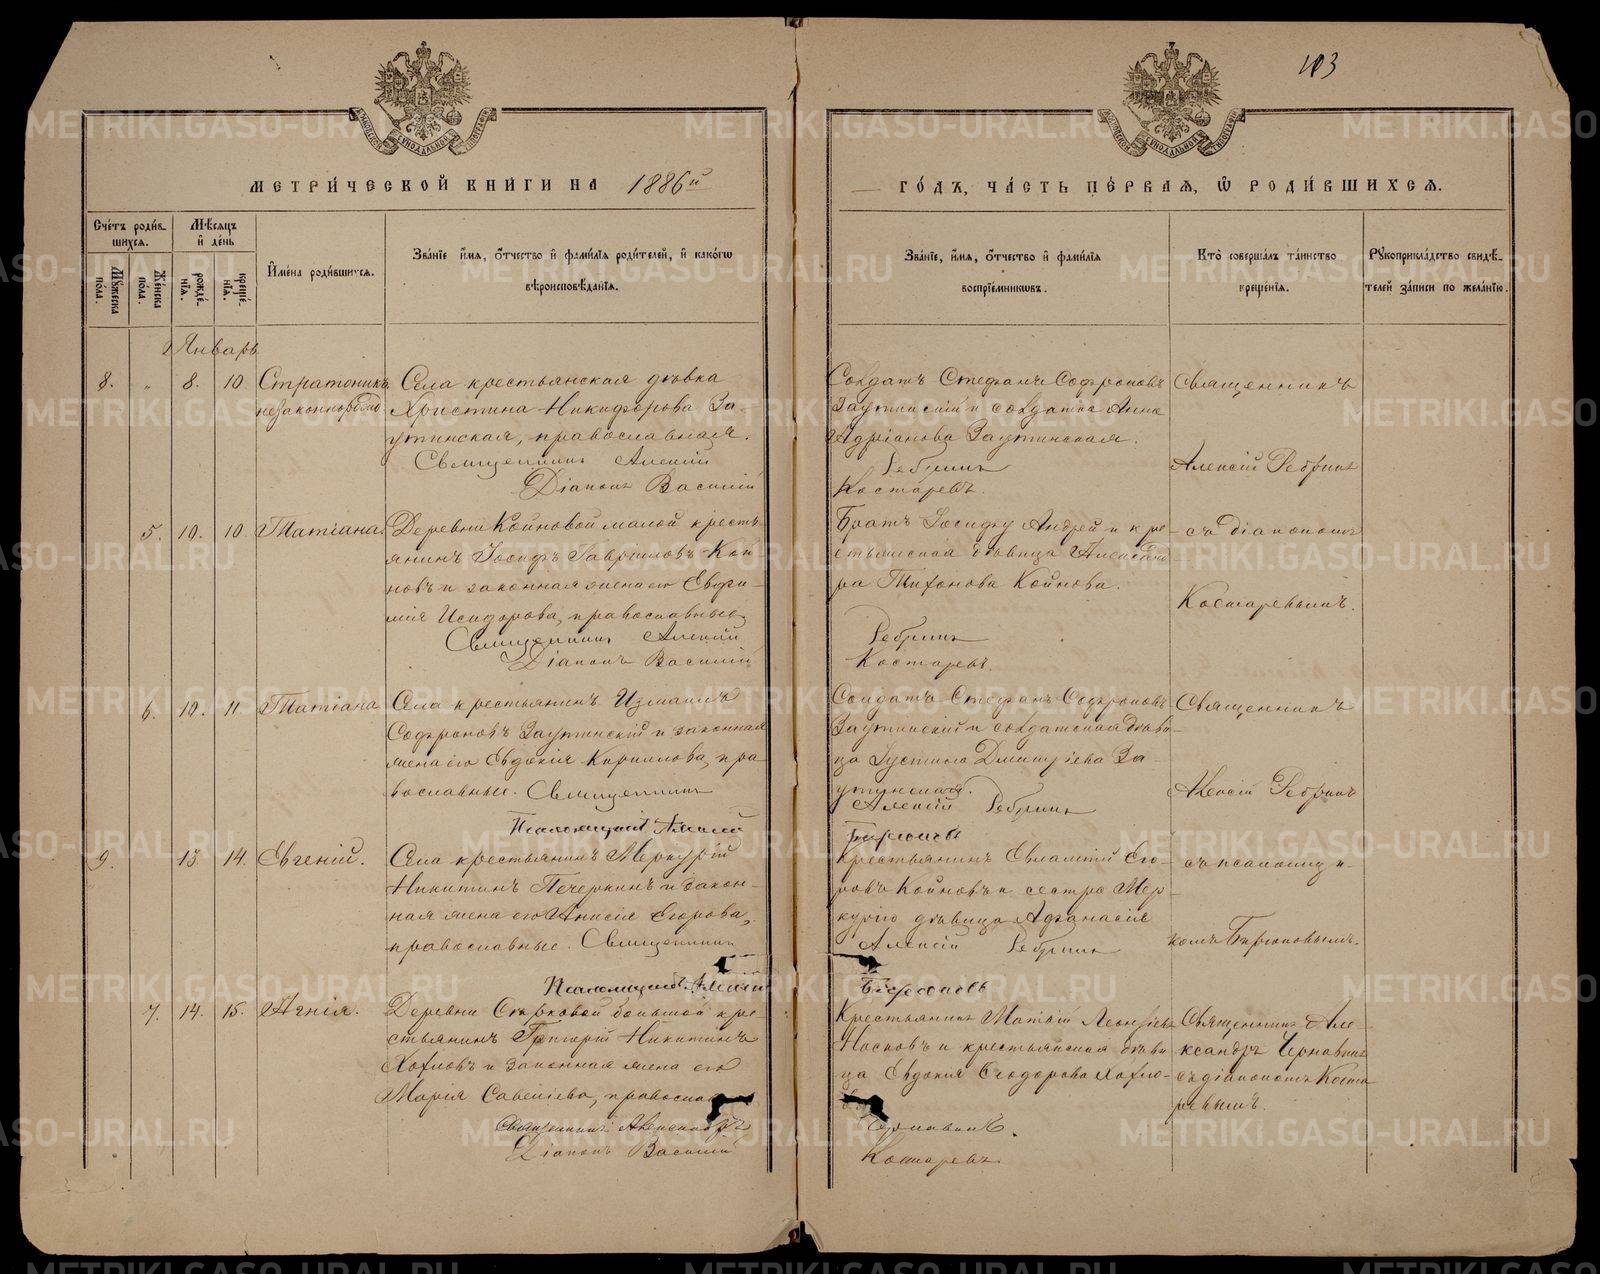 113
МЕТРИ́ЧЕСКОЙ КНИ́ГИ НА 1886й
ГО́ДЪ, ЧА́СТЬ ПЕ́РВАЯ, Ѡ РОДИ́ВШИХСЯ.
Сче́тъ роди́в-
шихся.
Му́жеска по́ла.
Же́нска по́ла.
Мѣсяцъ
и де́нь
рожде́-
нія.
креще́-
нія.
И́мена роди́вшихся.
Зва́ніе и́мя, о́тчество и фами́лія роди́телей, и како́гѡ
вѣроисповѣ́данія.
Зва́ніе, и́мя, о́тчество и фами́лія
воспріе́мниковъ.
Кто̀ соверша́лъ та́инство
креще́нія.
Рукоприкла́дство свидѣ́-
телей за́писи по жела́нію.
Январь
8. " 8. 10 Стратоникъ
незаконнорожд.
Села крестьянская дѣвка
Христина Никифорова За-
утинская, православная.
Священникъ Алексій
Діаконъ Василій
Солдатъ Стефанъ Софроновъ
Заутинскій и солдатка Анна
Адріанова Заутинская.
Ребринъ
Костаревъ.
Священникъ
Алексій Ребринъ
5. 10. 10 Татіана.
Деревни Койновой малой кресть-
янинъ Іосифъ Гавріиловъ Кой-
новъ и законная жена его Евфи-
мія Исидорова, православные
Священникъ Алексій
Діаконъ Василій
Братъ Іосифу Андрей и кре-
стьянская дѣвица Александ-
ра Тихонова Койнова.
Ребринъ
Костаревъ.
съ діакономъ
Костаревымъ.
6. 10. 11. Татіана
Села крестьянинъ Измаилъ
Софроновъ Заутинскій и законная
жена его Евдокія Кириллова, пра-
вославные. Священникъ
Псаломщикъ Алексій
Солдатъ Стефанъ Софроновъ
Заутинскій и солдатская дѣви-
ца Іустина Дмитріева За-
утинская.
Алексій Ребринъ
Бирюковъ
Священникъ
Алексій Ребринъ
9. 13. 14. Евгеній.
Села крестьянинъ Меркурій
Никитинъ Печеркинъ и закон-
ная жена его Анисія Егорова,
православные. Священникъ
Псаломщикъ Алексій
Крестьянинъ Евлампій Его-
ровъ Койновъ и сестра Мер-
курію дѣвица Афанасія
Алексій Ребринъ
Бирюковъ
съ псаломщи-
комъ Бирюковымъ.
7. 14. 15. Агнія.
Деревни Серковой большой кре-
стьянинъ Григорій Никитинъ
Хохловъ и законная жена его
Марія Савеліева, православ
Священникъ Александръ
Діаконъ Василій
Крестьянинъ Матвій Леонтіевъ
Носковъ и крестьянская дѣви-
ца Евдокія Ѳеодорова Хохло-
Чернавинъ.
Костаревъ.
Священникъ Але-
ксандръ Чернавинъ
съ діакономъ Коста
ревымъ.